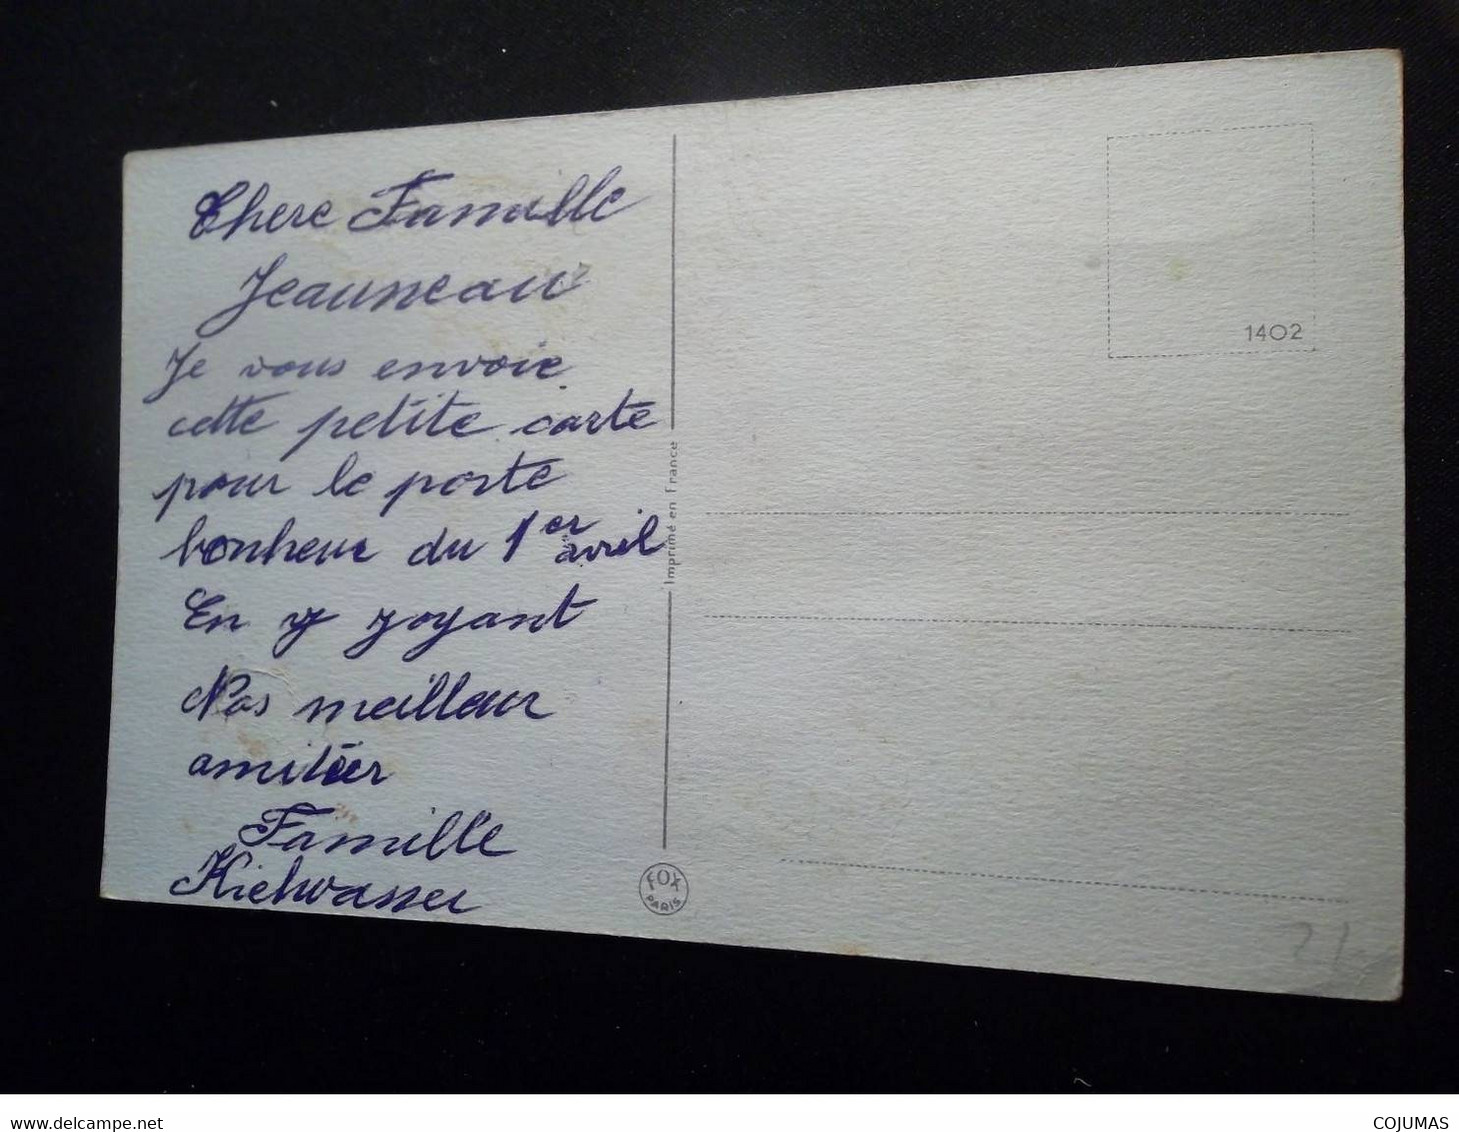 Chere Famille
Jeauneau
Je vous envoie
cette petite carte
pour le porte
bonheur du 1er avril
En y joyant
Nos meilleur
amitier
Famille
Kielwasser
Imprimé en France
FOX
PARIS
1402
delcampe.net
COJUMAS